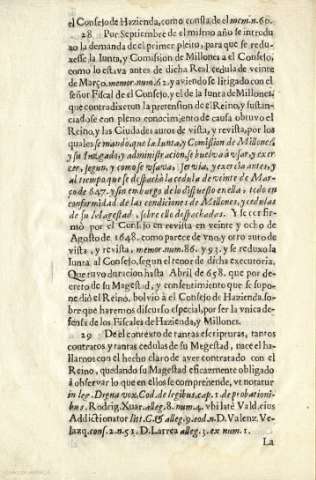 el Consejo de Hazienda, como consta de el mem. n. 60.
28 Por Septiembre de el mismo año se introdu
xo la demanda de el primer pleito, para que se redu-
xesse la Iunta, y Comission de Millones a el Consejo,
como lo estava antes de dicha Real cedula de veinte
de Março, memor. num. 62. y aviendo se litigado con el
señor Fiscal de el Consejo, y el de la Iunta de Millones,
que contradixeron la pretension de el Reino, y sustan-
ciadose con pleno conocimiento de causa obtuvo el
Reino, y las Ciudades autos de vista, y revista, por los
quales se mandò, que la Iunta, y Comission de Millones,
y su Iuzgado, y administracion, se buelva à usar, y exer
cer, segun, y como se usava, servia, y exercia antes, y
al tiempo que se despachò la cedula de veinte de Mar-
ço de 647. y sin embargo de lo dispuesto en ella, todo en
conformidad de las condiciones de Millones, y cedulas
de su Magestad, sobre ello despachadas. Y se confir-
mò por el Consejo en revista en veinte y ocho de
Agosto de 1648. como parece de uno, y otro auto de
vista, y revista, memor. num. 86. y 93. y se reduxo la
Iunta al Consejo, segun el tenor de dicha executoria.
Que tuvo duracion hasta Abril de 658. que por de-
creto de su Magestad, y consentimiento que se supo-
ne diò el Reino, bolviò à el Consejo de Hazienda, so-
bre que haremos discurso especial, por ser la vnica de-
fensa de los Fiscales de Hazienda, y Millones.
29 De el contexto de tantas escripturas, tantos
contratos, y tantas cedulas de su Magestad, nace el ha-
llarnos con el hecho claro de aver contratado con el
Reino, quedando su Magestad eficazmente obligado
à observar lo que en ellos se comprehende, vt notatur
in leg. Digna vox, Cod. de legibus, cap. 1. de probationi-
bus, Rodrig. Xuar. alleg. 8. num. 4. vbi latè Valdesius
Addictionator D. Valenz. Ve-
lazq. cons. 2. n. 51. D. Larrea alleg. 3. ex num. 1.
La